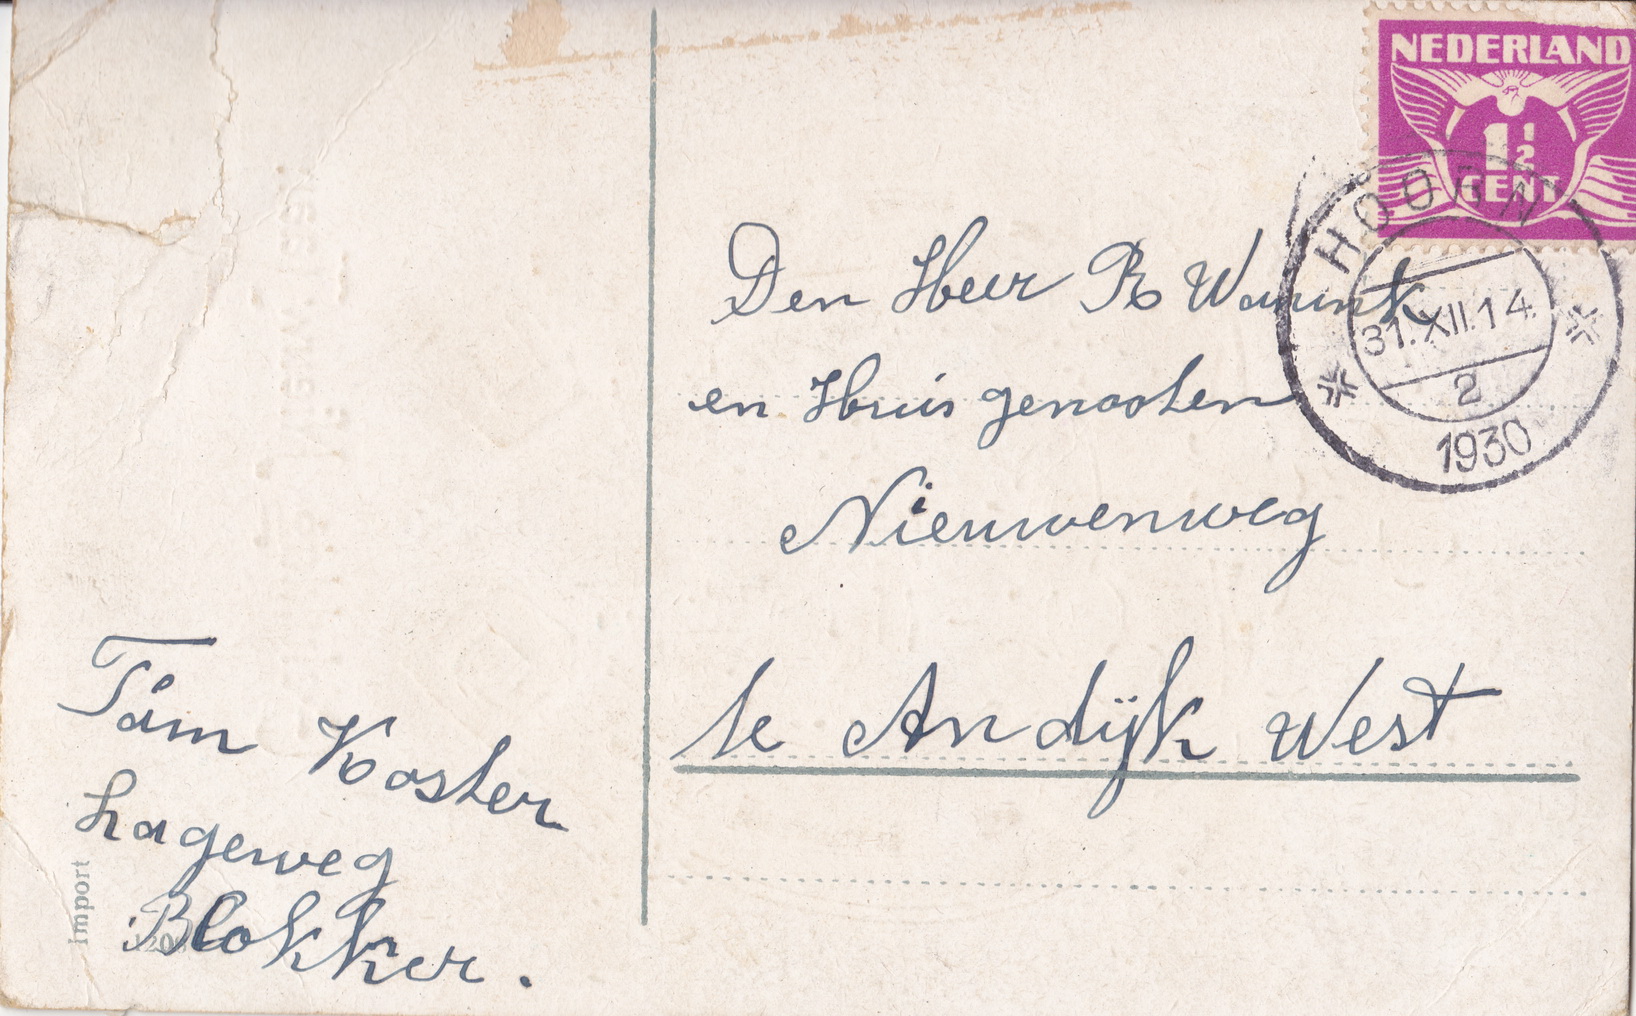 NEDERLAND
1½
CENT
HOORN
31.XII.14.
2
1930
Den Heer R Warink
en Huis genooten
Nieuwenweg
te Andijk West
Tám Koster
Lageweg
Blokker.
Import